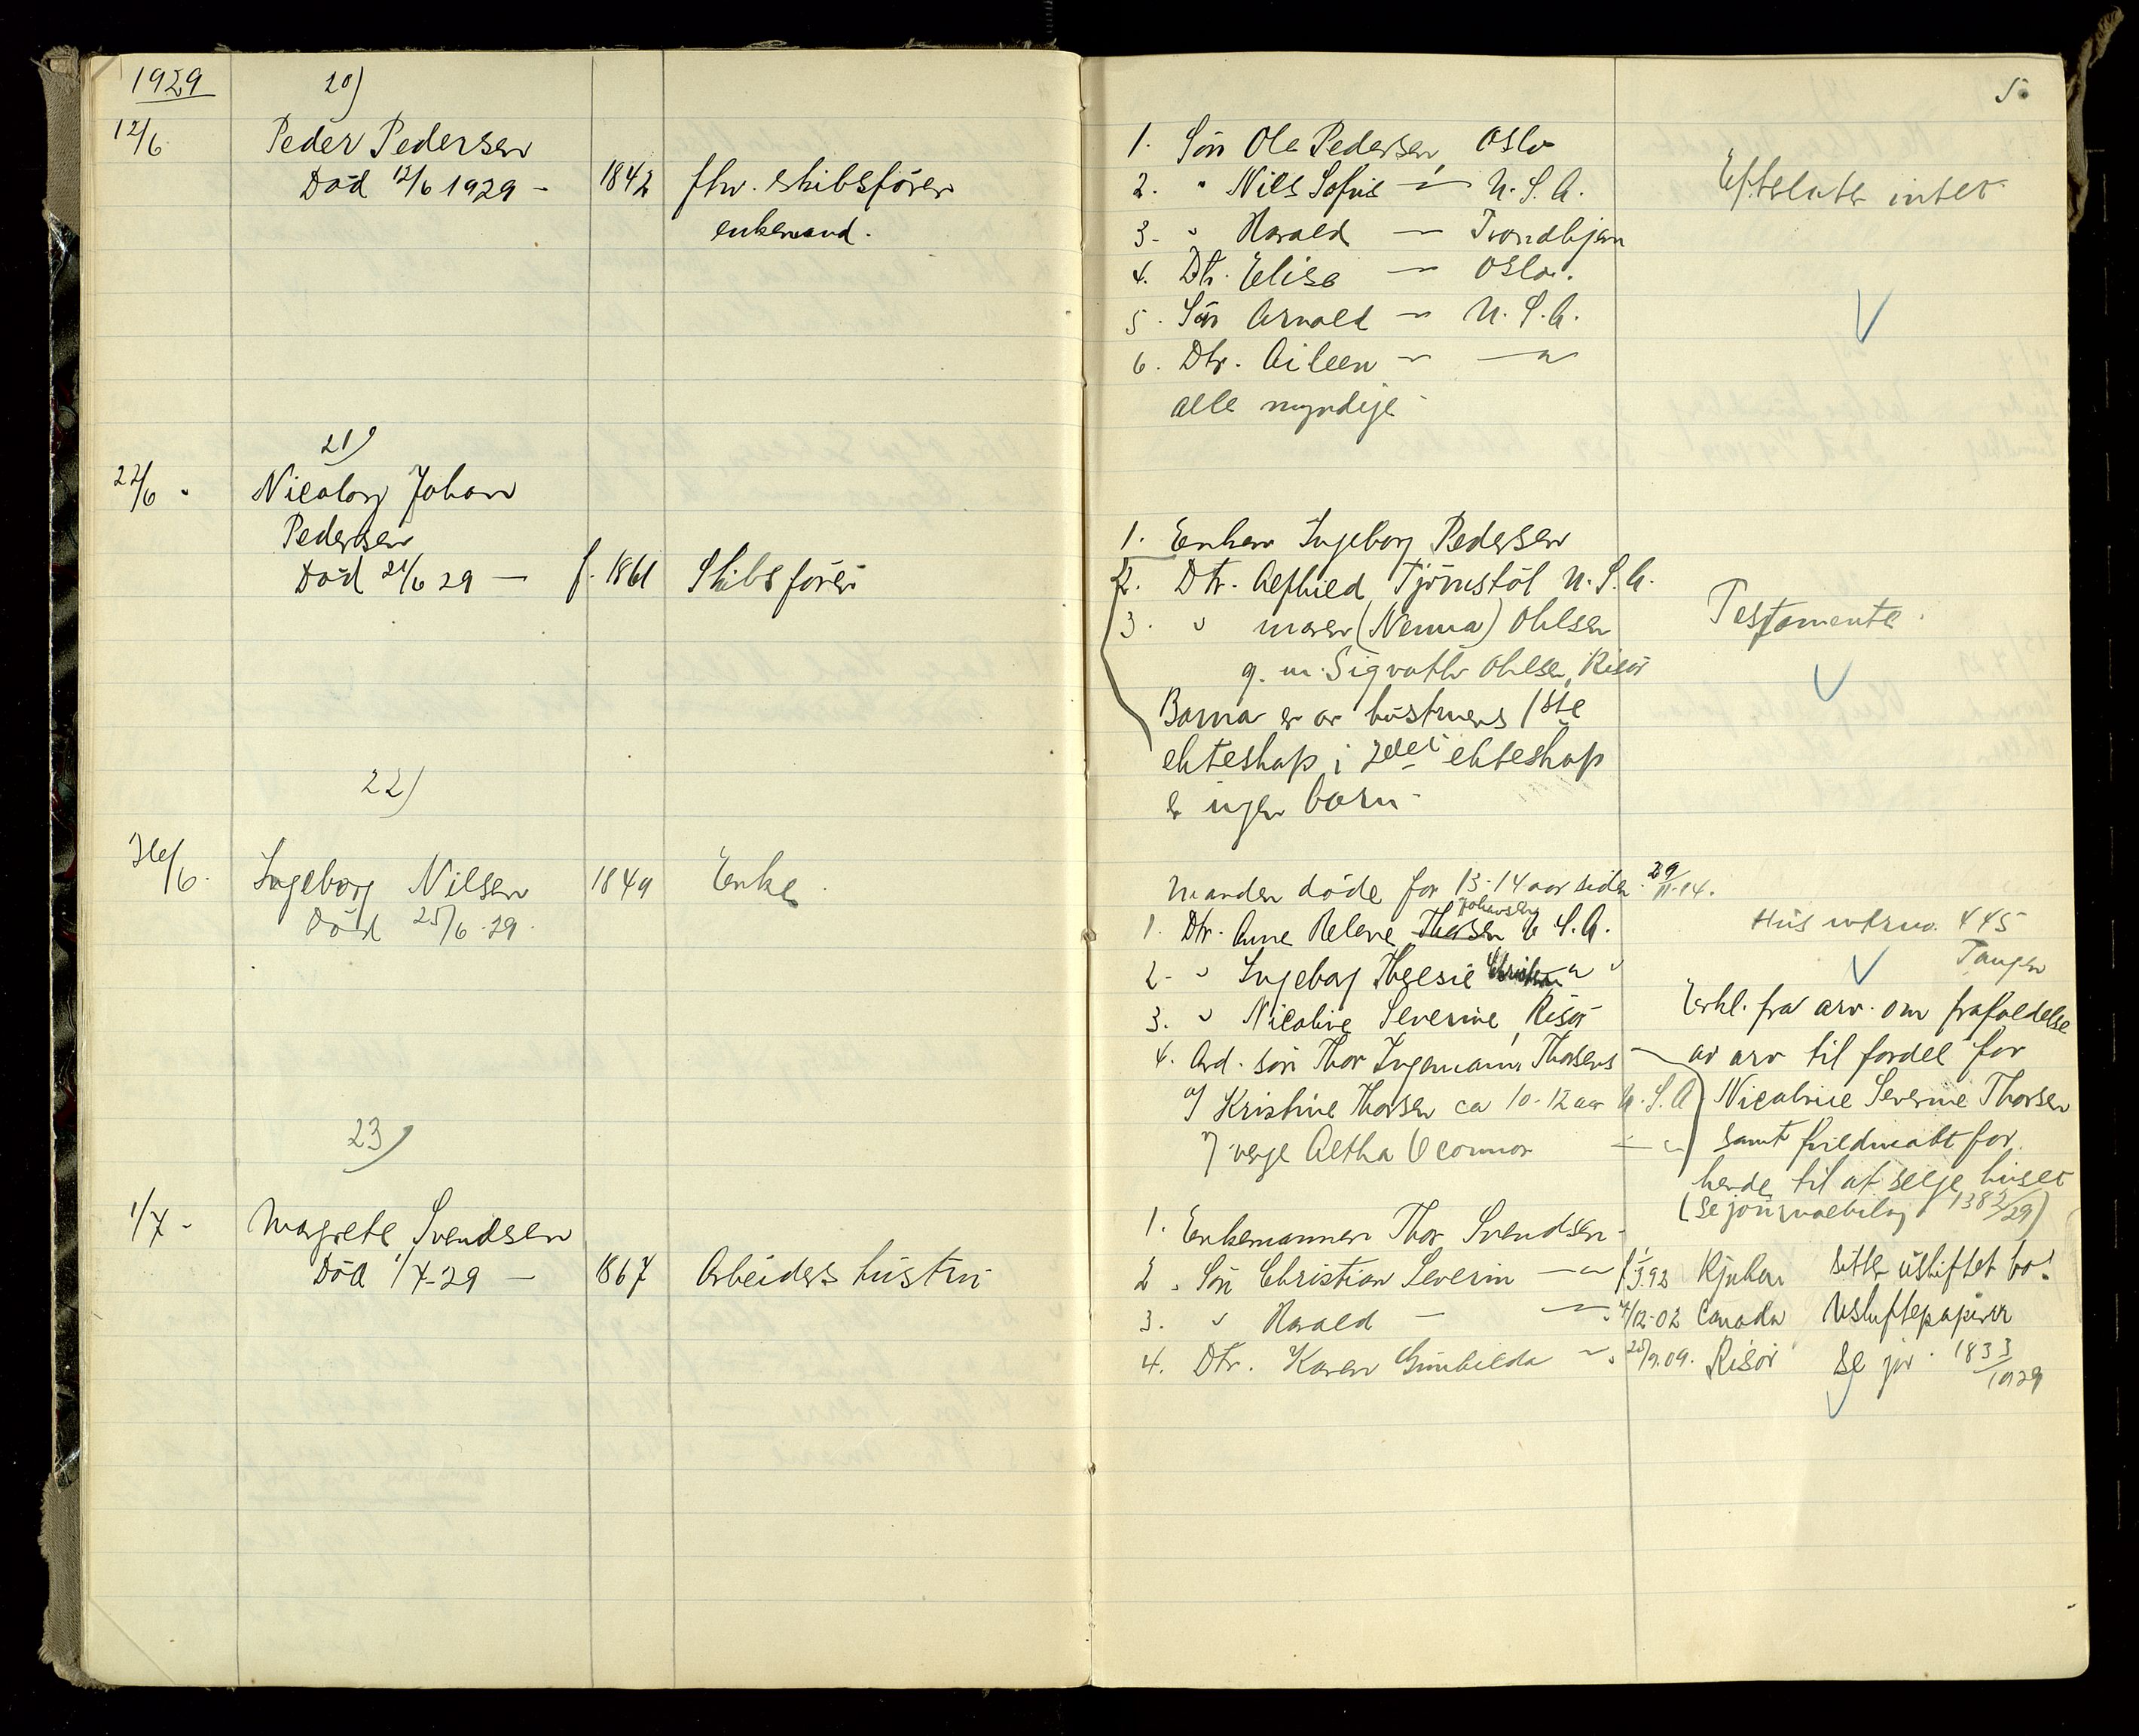 1929
5.
20)
12/6
Peder Pedersen
Død 12/6 1929 -
1842
fhv. skibsfører
enkemand.
1. Søn Ole Pedersen, Oslo
2. " Nils Sofus - " - U.S.A.
3. " Harald - " - Trondhjem
4. Dtr. Elise - " - Oslo.
5. Søn Arnold - " - U.S.A.
6. Dtr. Aileen - " - - " -
alle myndige
Efterlater intet
21)
22/6 "
Nicolay Johan
Pedersen
Død 21/6 29 -
f. 1861
Skibsfører
1. Enken Ingeborg Pedersen
2. Dtr. Alfhild Tjörnstöl U.S.A.
3. " Maren (Nenna) Ohlsen
g. m. Sigvath Ohlsen, Risør
Barna er av hustruens 1ste
ekteskap, i 2det ekteskap
er ingen barn.
Testamente.
22)
26/6.
Ingeborg Nilsen
Død 25/6 29.
1849
Enke
Manden døde for 13-14 aar siden. 29/11-14.
1. Dtr. Anne Helene Thorsen Johansen U.S.A.
2. " Ingeborg Theesie " "
3. " Nicoline Severine, Risør
4. Avd. søn Thor Ingemann Thorsens
a/ Kristine Thorsen ca 10-12 aar U.S.A
verge Aetha Oconnor - " -
Hus mtrno. 445
Tangen
Erkl. fra arv. om frafaldelse
av arv til fordel for
Nicoline Severine Thorsen
samt fuldmakt for
hende til at selge huset
(se journalbilag 1382/29)
23)
1/7 -
Magrete Svendsen
Død 1/7-29 -
1867
Arbeiders hustru
1. Enkemannen Thor Svendsen -
2. Søn Christian Severin - " - f. 1/3.92 Rjukan
3. " Harald - - " - 4/12-02 Canada
4. Dtr. Karen Gunhilda - ". 20/9.09. Risør
Sitter uskiftet bo!
Uskiftepapirer
se jnr. 1833/1929